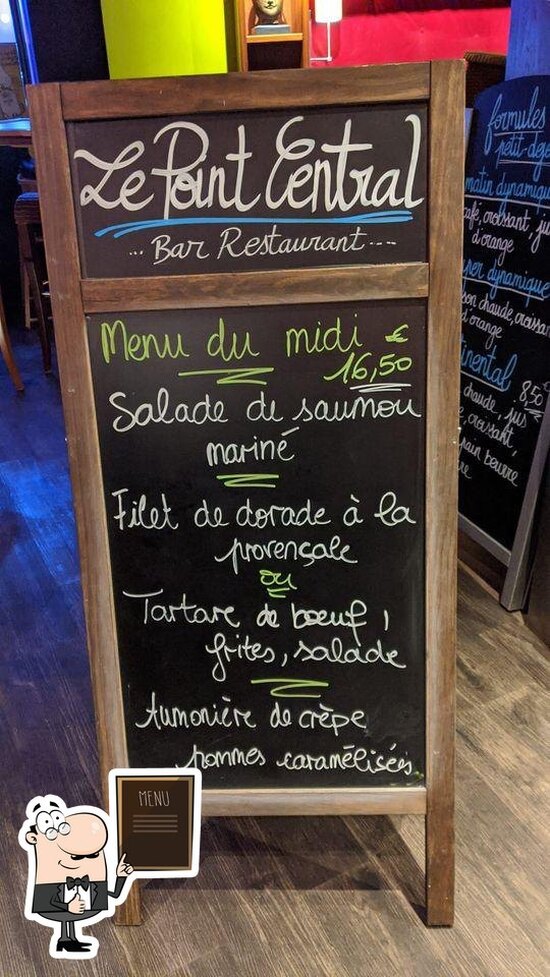 Le Point Central
... Bar Restaurant ...
Menu du midi €
16,50
Salade de saumon
mariné
Filet de dorade à la
provençale
ou
Tartare de bœuf,
frites, salade
Aumonière de crèpe
pommes caramélisées
MENU
formules
petit-dej
matin dynamique
café, croissant, ju
d'orange
ser dynamique
son chaude, croissan
d'orange
inental
8,50
chaude, jus
croissant,
pain beurre